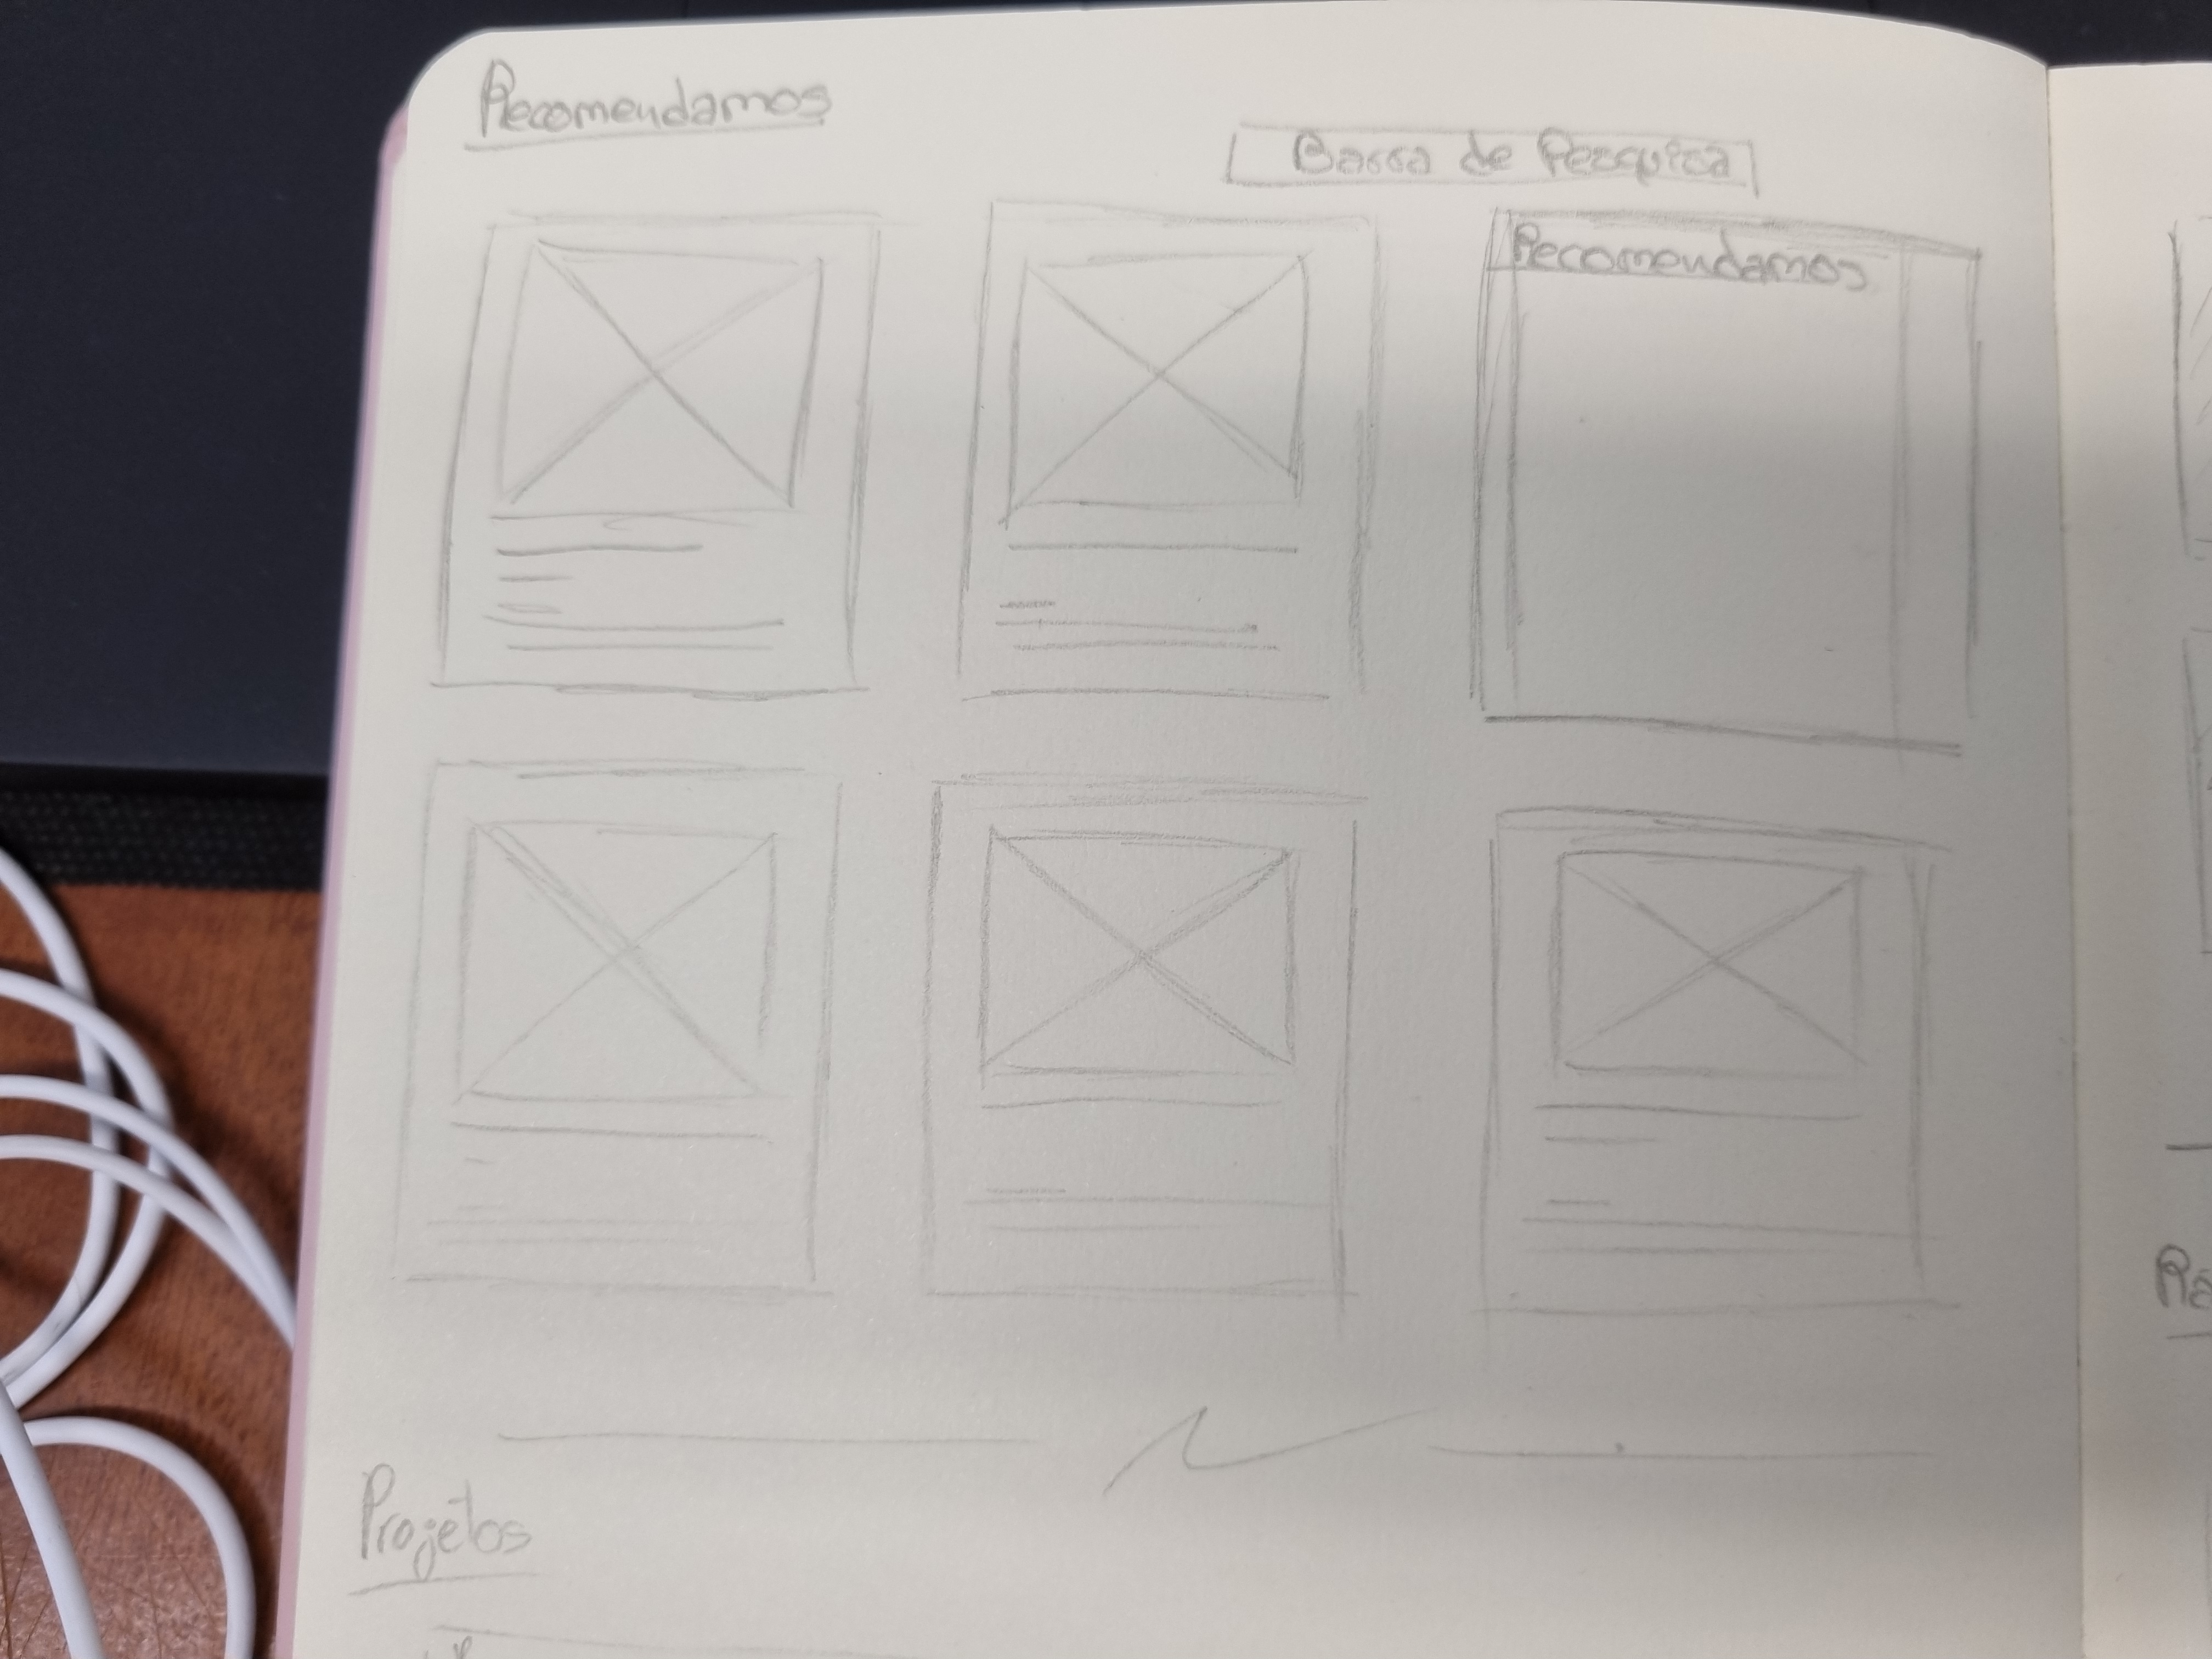 Recomendamos
Barra de Pesquisa
Recomendamos
Projetos
Ra